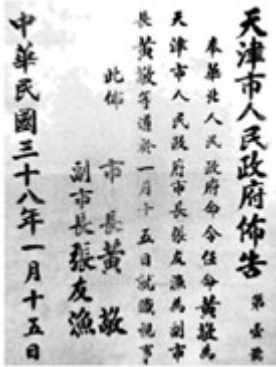 天津市人民政府佈告
第壹號
奉華北人民政府命令任命黃敬為
天津市人民政府市長張友漁為副市
長黃敬等遵於一月十五日就職視事
此佈
市長黃敬
副市長張友漁
中華民國三十八年一月十五日